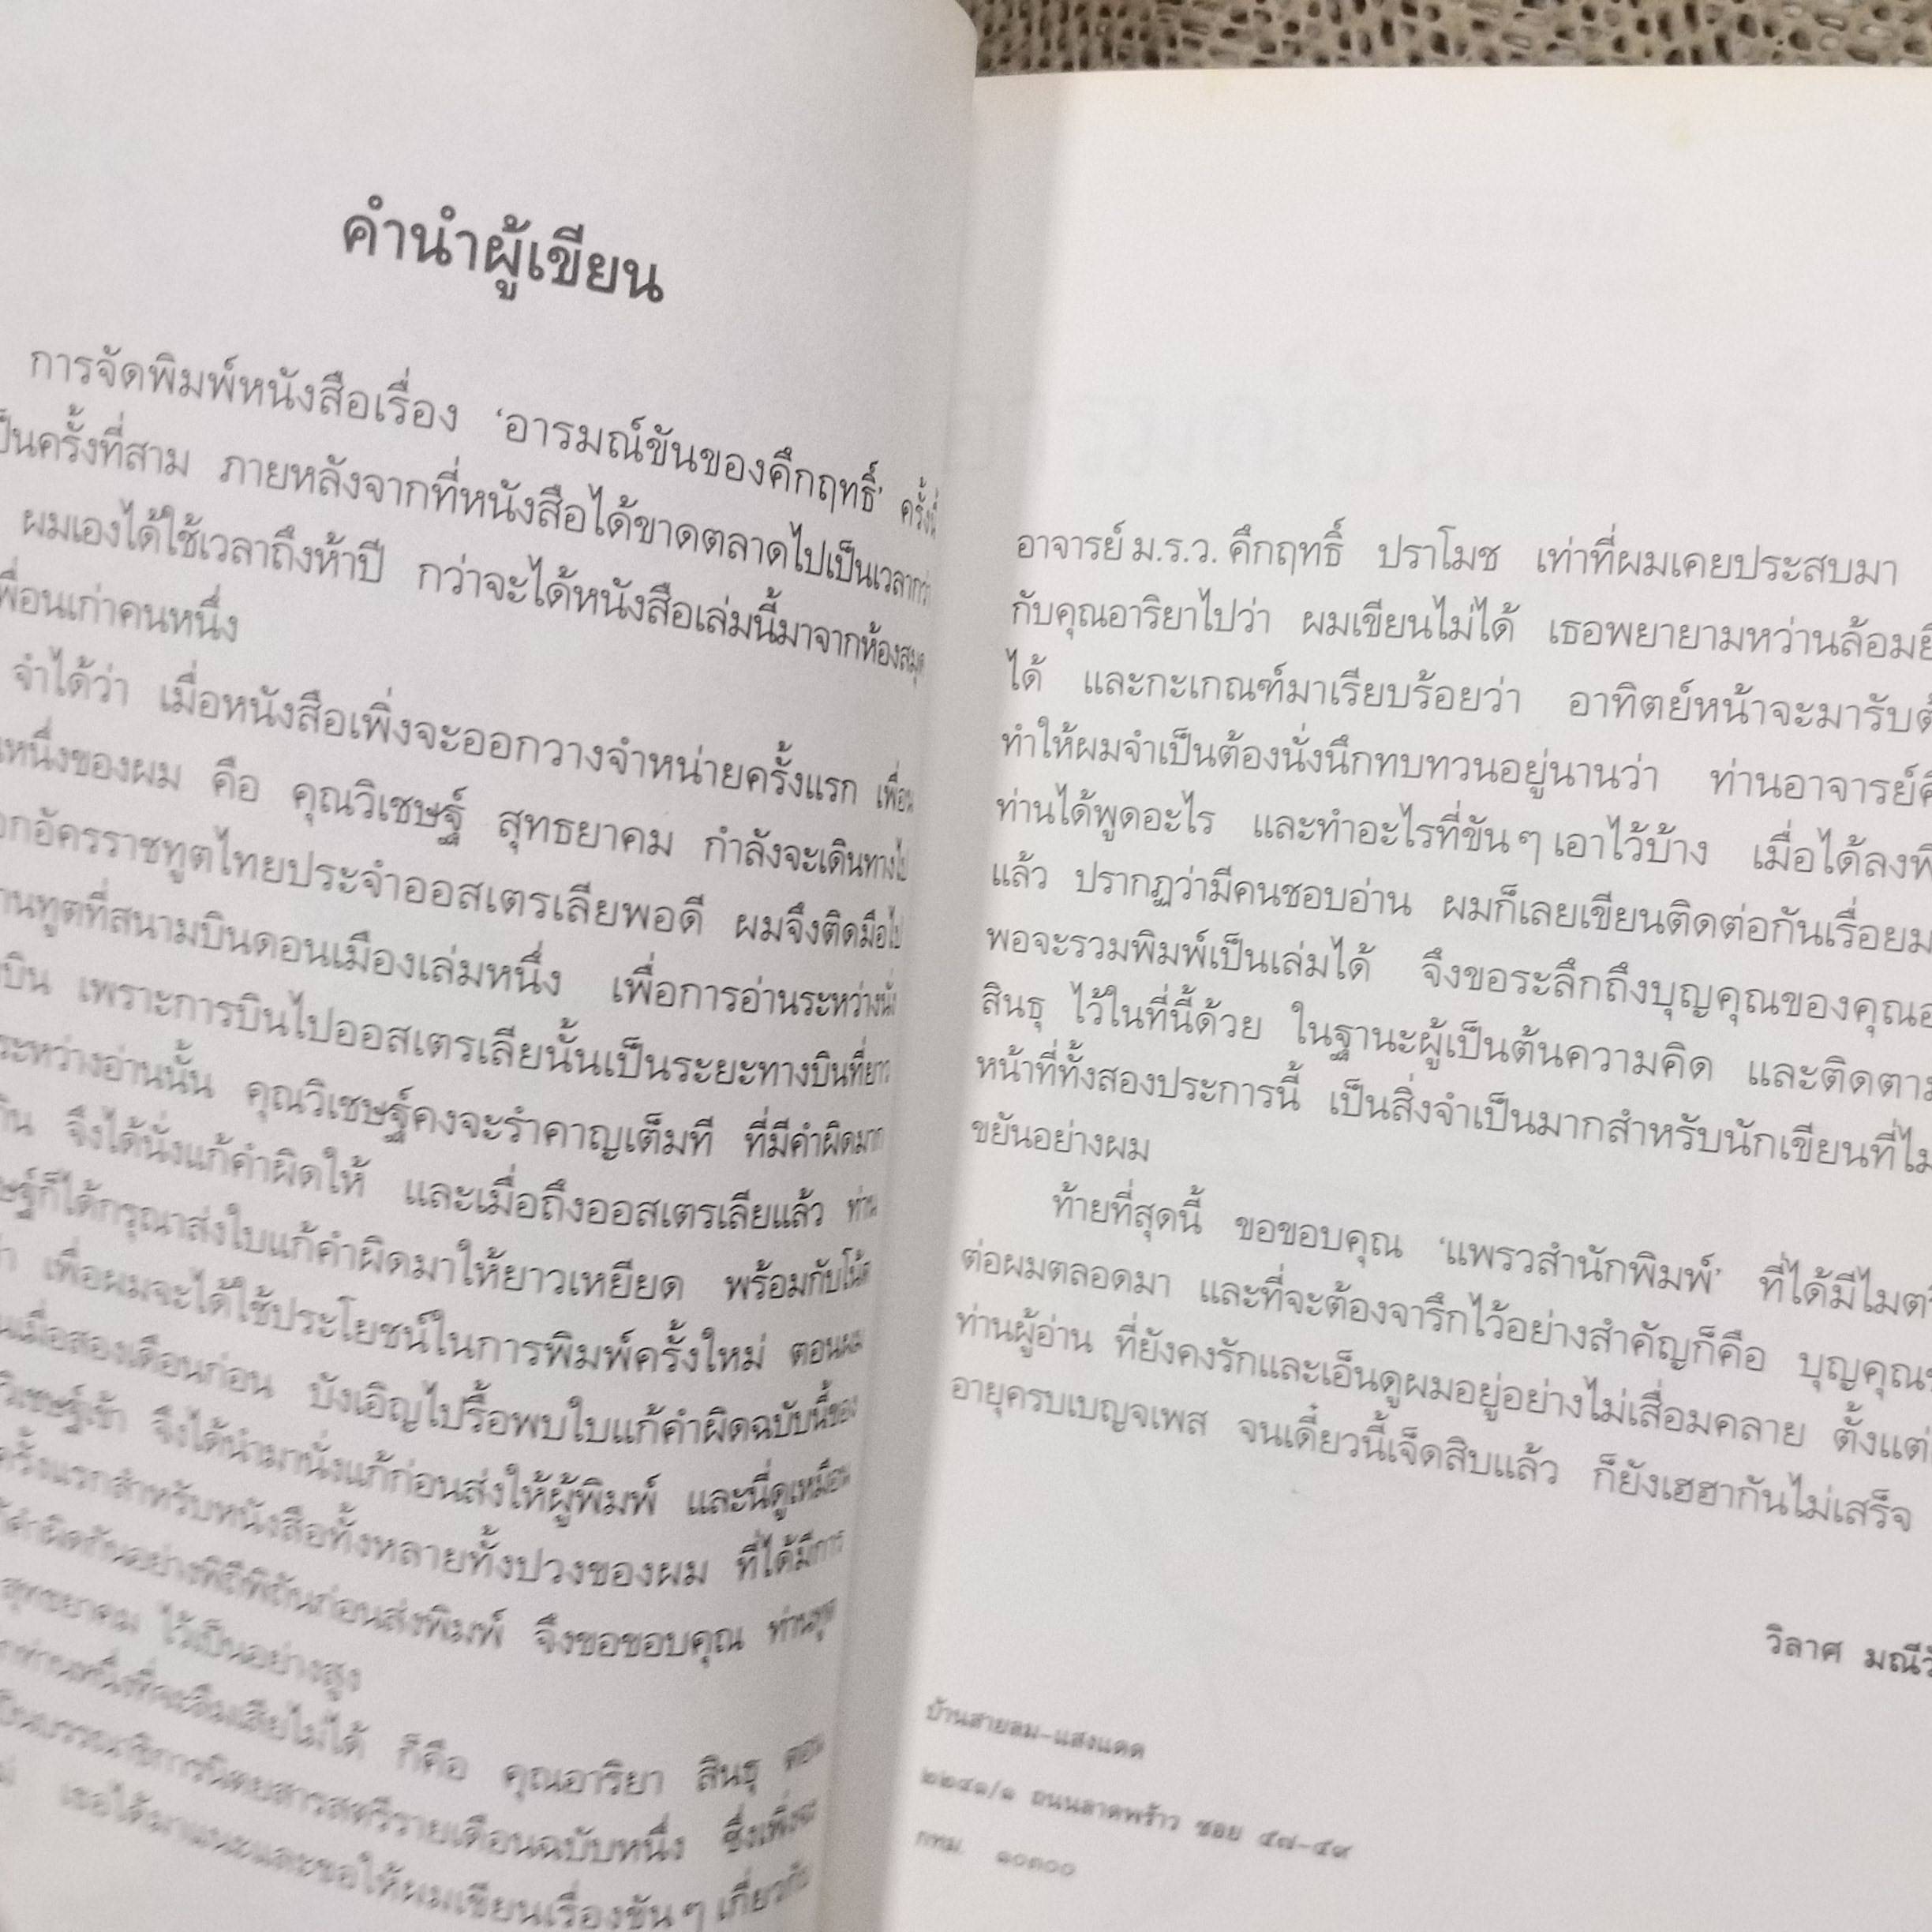 คำนำผู้เขียน
การจัดพิมพ์หนังสือเรื่อง ‘อารมณ์ขันของคึกฤทธิ์’ ครั้งนี้
เป็นครั้งที่สาม ภายหลังจากที่หนังสือได้ขาดตลาดไปเป็นเวลากว่า
ผมเองได้ใช้เวลาถึงห้าปี กว่าจะได้หนังสือเล่มนี้มาจากห้องสมุด
เพื่อนเก่าคนหนึ่ง
จำได้ว่า เมื่อหนังสือเพิ่งจะออกวางจำหน่ายครั้งแรก เพื่อน
หนึ่งของผม คือ คุณวิเชษฐ์ สุทธยาคม กำลังจะเดินทางไป
อัครราชทูตไทยประจำออสเตรเลียพอดี ผมจึงติดมือไป
ทูตที่สนามบินดอนเมืองเล่มหนึ่ง เพื่อการอ่านระหว่างนั่ง
บิน เพราะการบินไปออสเตรเลียนั้นเป็นระยะทางบินที่ยาว
ระหว่างอ่านนั้น คุณวิเชษฐ์คงจะรำคาญเต็มที ที่มีคำผิดมาก
จึงได้นั่งแก้คำผิดให้ และเมื่อถึงออสเตรเลียแล้ว ท่าน
ก็ได้กรุณาส่งใบแก้คำผิดมาให้ยาวเหยียด พร้อมกับโน้ต
เพื่อผมจะได้ใช้ประโยชน์ในการพิมพ์ครั้งใหม่ ตอนผม
เมื่อสองเดือนก่อน บังเอิญไปรื้อพบใบแก้คำผิดฉบับนี้ของ
วิเชษฐ์เข้า จึงได้นำมานั่งแก้ก่อนส่งให้ผู้พิมพ์ และนี่ดูเหมือน
ครั้งแรกสำหรับหนังสือทั้งหลายทั้งปวงของผม ที่ได้มีการ
คำผิดกันอย่างพิถีพิถันก่อนส่งพิมพ์ จึงขอขอบคุณ ท่านทูต
สุทธยาคม ไว้เป็นอย่างสูง
ท่านหนึ่งที่จะลืมเสียไม่ได้ ก็คือ คุณอาริยา สินธุ ตอน
บรรณาธิการนิตยสารสตรีรายเดือนฉบับหนึ่ง ซึ่งเพิ่งจะ
เธอได้มาแนะและขอให้ผมเขียนเรื่องขันๆ เกี่ยวกับ
อาจารย์ ม.ร.ว. คึกฤทธิ์ ปราโมช เท่าที่ผมเคยประสบมา
กับคุณอาริยาไปว่า ผมเขียนไม่ได้ เธอพยายามหว่านล้อม
ได้ และกะเกณฑ์มาเรียบร้อยว่า อาทิตย์หน้าจะมารับ
ทำให้ผมจำเป็นต้องนั่งนึกทบทวนอยู่นานว่า ท่านอาจารย์
ท่านได้พูดอะไร และทำอะไรที่ขันๆ เอาไว้บ้าง เมื่อได้ลง
แล้ว ปรากฏว่ามีคนชอบอ่าน ผมก็เลยเขียนติดต่อกันเรื่อยมา
พอจะรวมพิมพ์เป็นเล่มได้ จึงขอระลึกถึงบุญคุณของคุณ
สินธุ ไว้ในที่นี้ด้วย ในฐานะผู้เป็นต้นความคิด และติดตาม
หน้าที่ทั้งสองประการนี้ เป็นสิ่งจำเป็นมากสำหรับนักเขียนที่ไม่
ขยันอย่างผม
ท้ายที่สุดนี้ ขอขอบคุณ ‘แพรวสำนักพิมพ์’ ที่ได้มีไมตรี
ต่อผมตลอดมา และที่จะต้องจารึกไว้อย่างสำคัญก็คือ บุญคุณ
ท่านผู้อ่าน ที่ยังคงรักและเอ็นดูผมอยู่อย่างไม่เสื่อมคลาย ตั้งแต่
อายุครบเบญจเพส จนเดี๋ยวนี้เจ็ดสิบแล้ว ก็ยังเฮฮากันไม่เสร็จ
วิลาศ มณี
บ้านสายลม-แสงแดด
๒๒๔๑/๑ ถนนลาดพร้าว ซอย ๕๗-๕๙
กทม. ๑๐๓๐๐